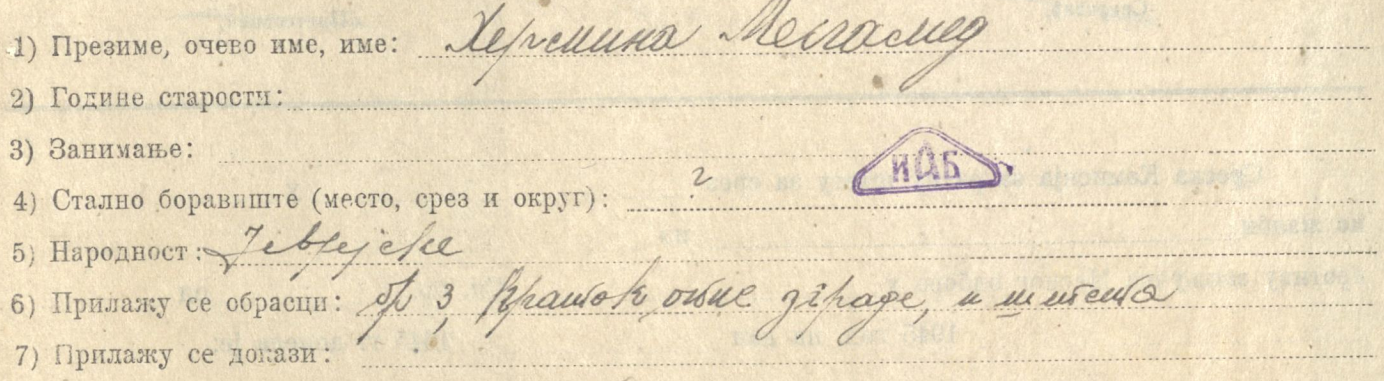 1) Презиме, очево име, име: Хермина Мешамед
2) Године старости:
3) Занимање:
ИАБ
4) Стално боравиште (место, срез и округ): ?
5) Народност: Јеврејске
6) Прилажу се обрасци: бр 3, кратак опис зграде, и штета
7) Прилажу се докази: